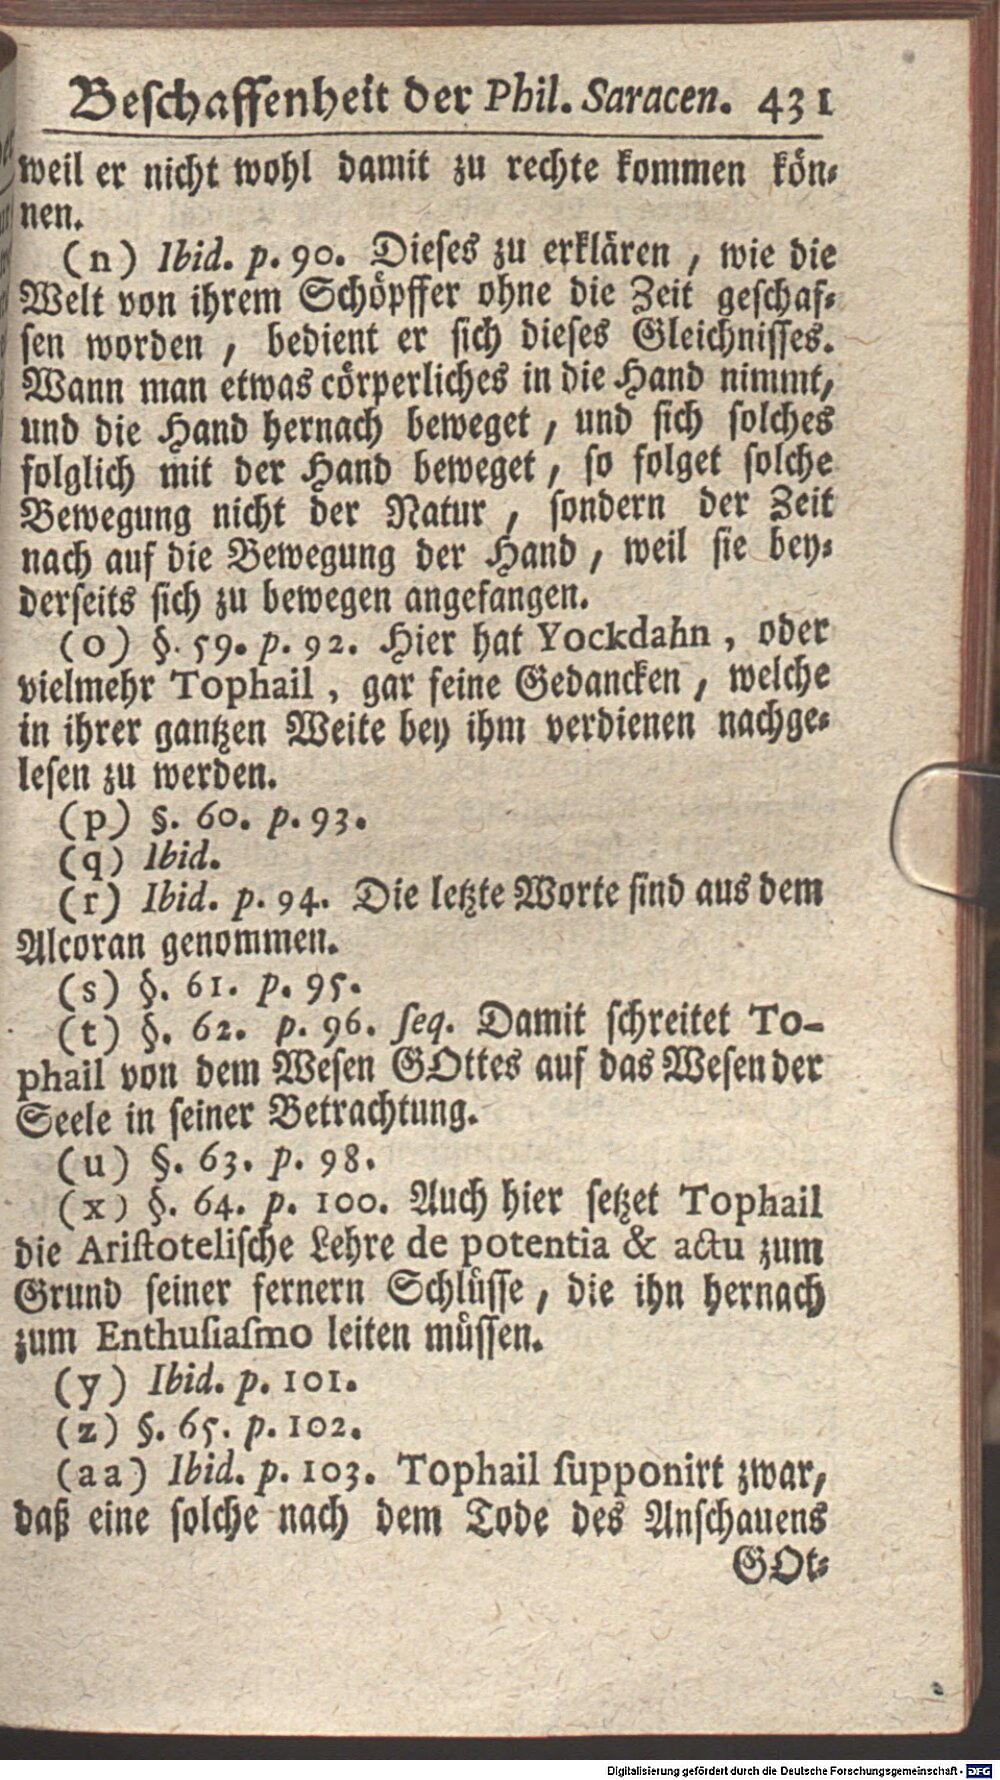 Beſchaffenheit der Phil. Saracen. 431
weil er nicht wohl damit zu rechte kommen kön⸗
nen.
(n) Ibid. p. 90. Dieſes zu erklären, wie die
Welt von ihrem Schöpffer ohne die Zeit geſchaf⸗
fen worden, bedient er ſich dieſes Gleichniſſes.
Wann man etwas cörperliches in die Hand nimmt,
und die Hand hernach beweget, und ſich ſolches
folglich mit der Hand beweget, ſo folget ſolche
Bewegung nicht der Natur, ſondern der Zeit
nach auf die Bewegung der Hand, weil ſie bey⸗
derſeits ſich zu bewegen angefangen.
(o) §. 59. p. 92. Hier hat Yockdahn, oder
vielmehr Tophail, gar feine Gedancken, welche
in ihrer gantzen Weite bey ihm verdienen nachge⸗
leſen zu werden.
(p) §. 60. p. 93.
(q) Ibid.
(r) Ibid. p. 94. Die letzte Worte ſind aus dem
Alcoran genommen.
(s) §. 61. p. 95.
(t) §. 62. p. 96. ſeq. Damit ſchreitet To-
phail von dem Weſen GOttes auf das Weſen der
Seele in ſeiner Betrachtung.
(u) §. 63. p. 98.
(x) §. 64. p. 100. Auch hier ſetzet Tophail
die Ariſtoteliſche Lehre de potentia & actu zum
Grund ſeiner fernern Schlüſſe, die ihn hernach
zum Enthuſiaſmo leiten müſſen.
(y) Ibid. p. 101.
(z) §. 65. p. 102.
(aa) Ibid. p. 103. Tophail ſupponirt zwar,
daß eine ſolche nach dem Tode des Anſchauens
GOt⸗
Digitalisierung gefördert durch die Deutsche Forschungsgemeinschaft - DFG